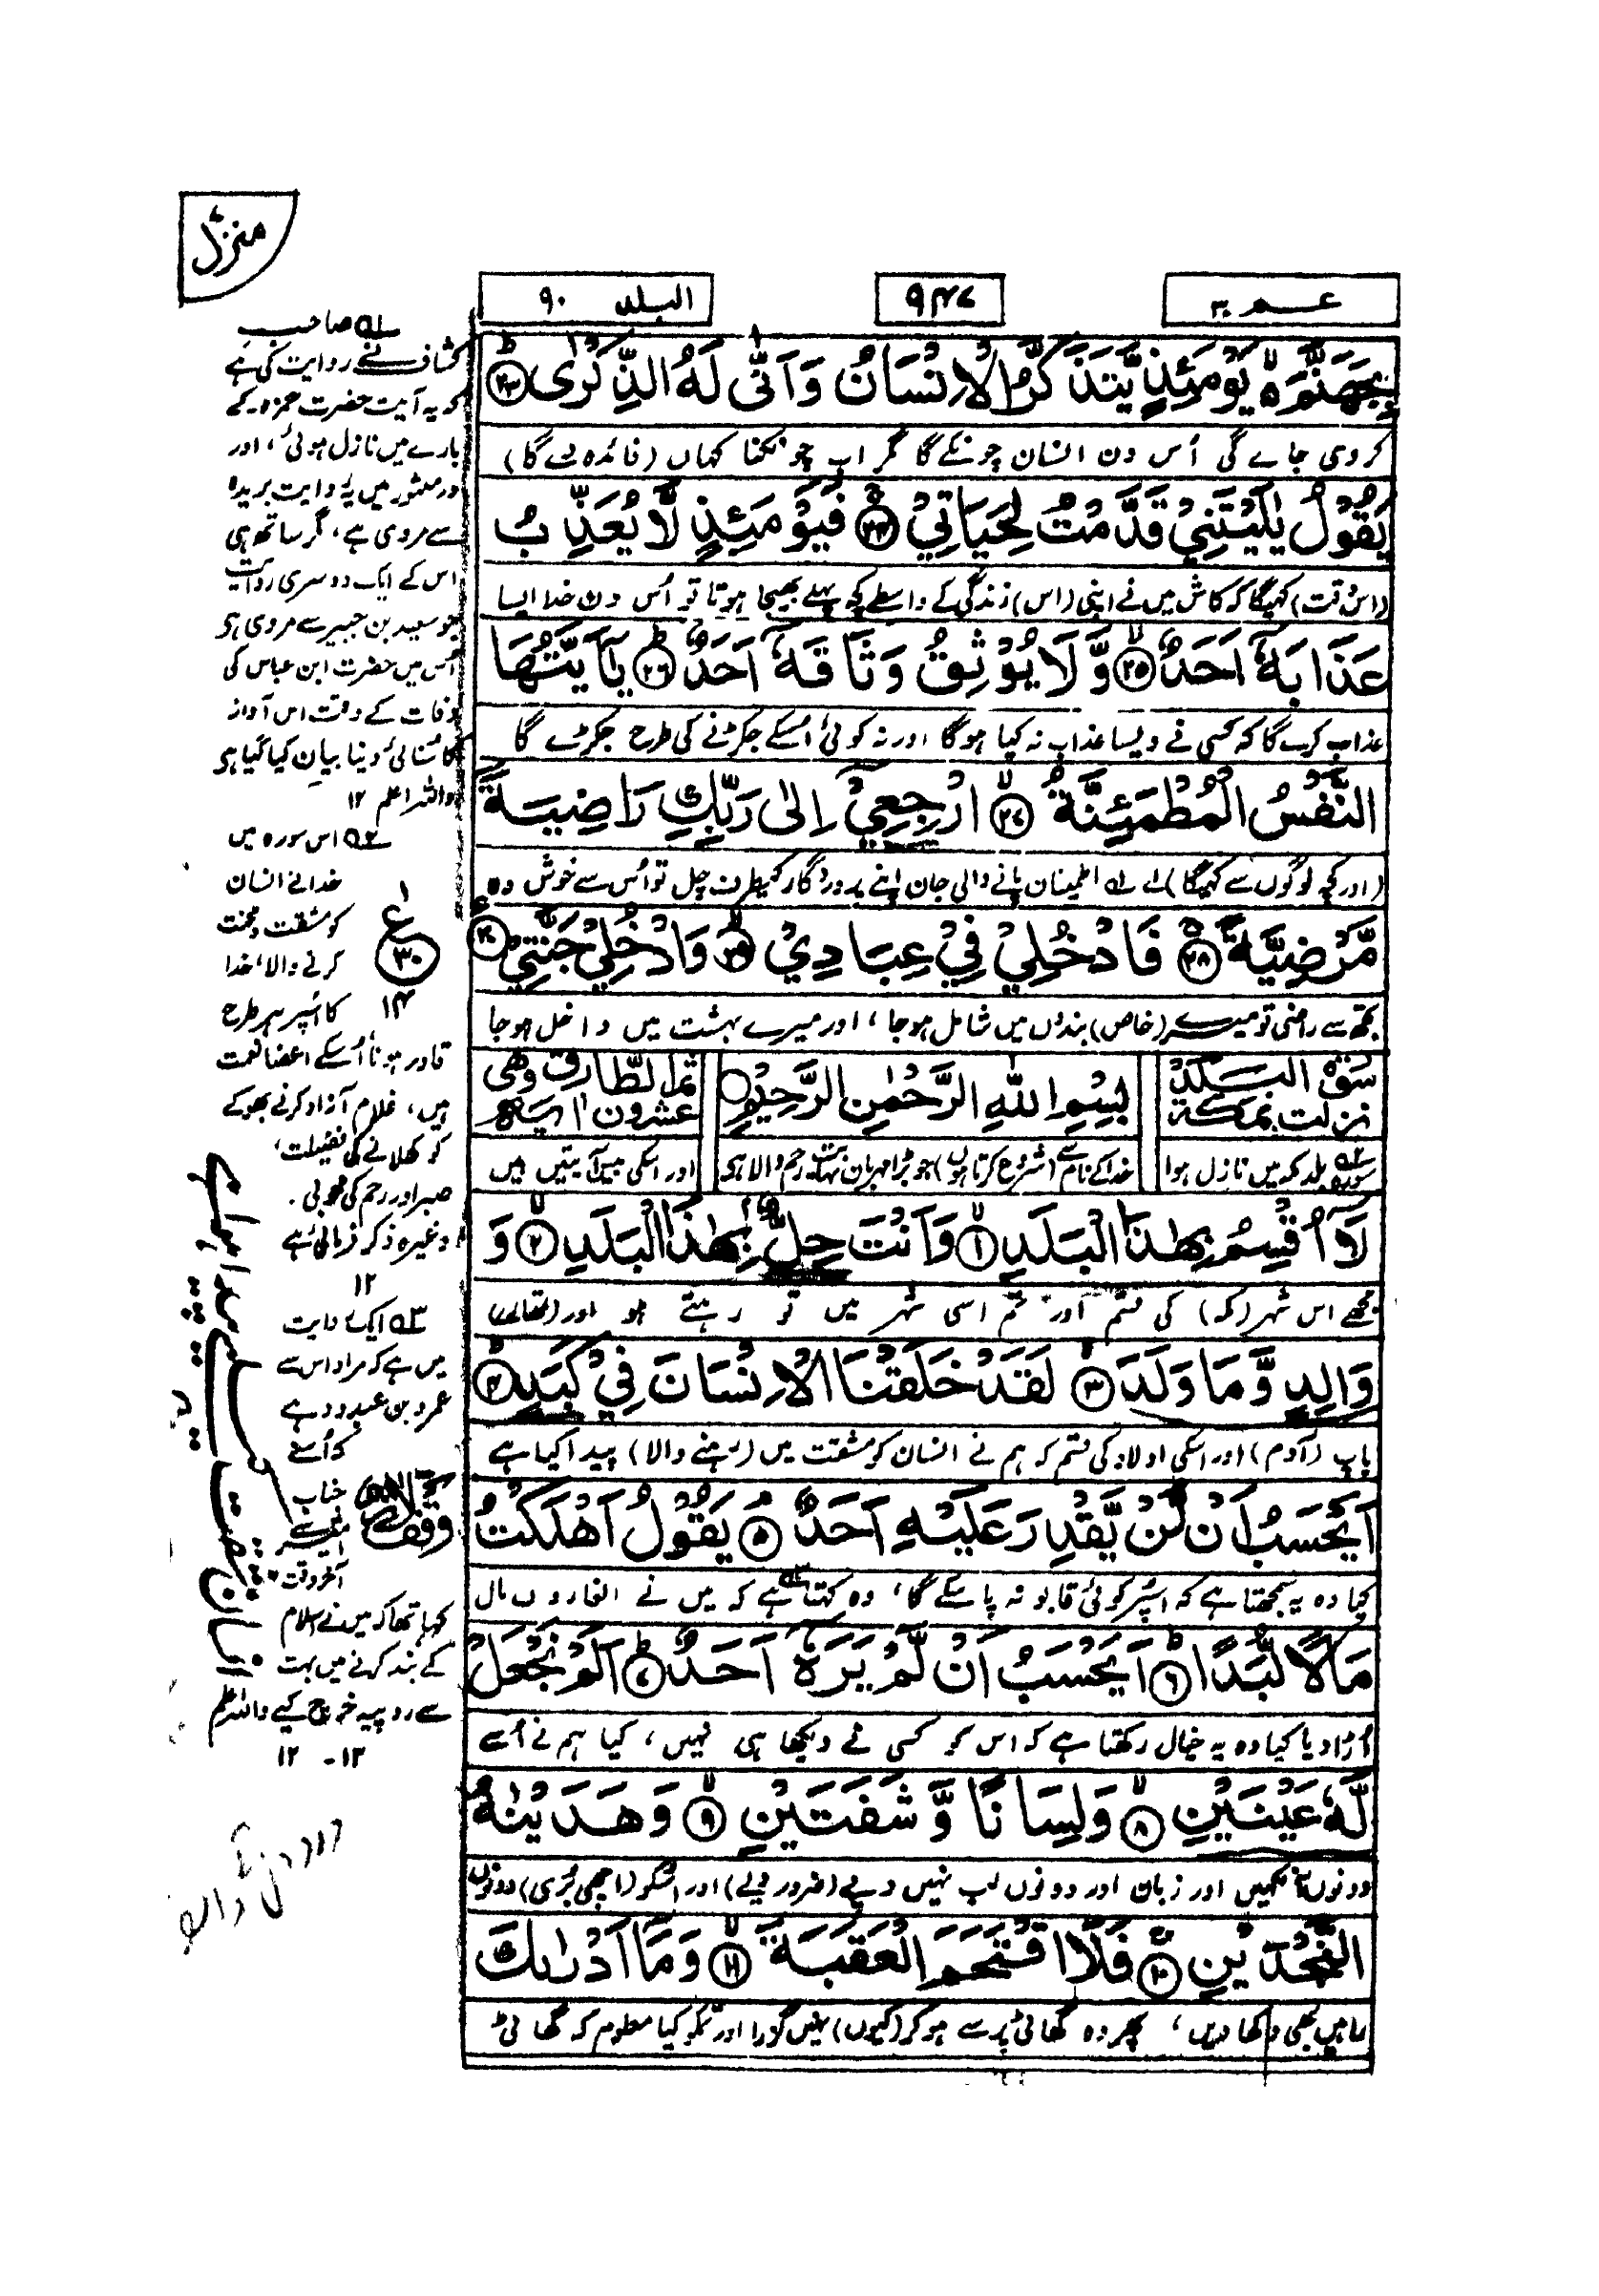 منزل
عم ۳۰
۹۴۷
البلد ۹۰
بِجَهَنَّمَ ۙ يَوْمَئِذٍ يَّتَذَكَّرُ الْاِنْسَانُ وَاَنّٰى لَهُ الذِّكْرٰى ؕ ۲۳
کر دی جاے گی اُس دن انسان چونکے گا مگر اب چونکنا کہاں (فائدہ دے گا)
يَقُوْلُ يٰلَيْتَنِيْ قَدَّمْتُ لِحَيَاتِيْ ۚ ۲۴ فَيَوْمَئِذٍ لَّا يُعَذِّبُ
(اس وقت) کہیگا کہ کاش میں نے اپنی (اس) زندگی کے واسطے کچھ پہلے بھیجا ہوتا تو اُس دن خدا ایسا
عَذَابَهٗۤ اَحَدٌ ۙ ۲۵ وَّلَا يُوْثِقُ وَثَاقَهٗۤ اَحَدٌ ؕ ۲۶ يٰۤاَيَّتُهَا
عذاب کرے گا کہ کسی نے ویسا عذاب نہ کیا ہوگا اور نہ کوئی اُسکے جکڑنے کی طرح جکڑے گا
النَّفْسُ الْمُطْمَئِنَّةُ ۙ ۲۷ ارْجِعِيْۤ اِلٰى رَبِّكِ رَاضِيَةً
(اور کچھ لوگوں سے کہیگا) اے ۱ اطمینان پانے والی جان اپنے پروردگار کیطرف چل تو اُس سے خوش وہ
مَّرْضِيَّةً ۚ ۲۸ فَادْخُلِيْ فِيْ عِبَادِيْ ۙ ۲۹ وَادْخُلِيْ جَنَّتِيْ ۳۰
تجھ سے راضی تو میرے (خاص) بندوں میں شامل ہوجا، اور میرے بہشت میں داخل ہوجا
سورة البلد نزلت بمكة
بِسْمِ اللّٰهِ الرَّحْمٰنِ الرَّحِيْمِ
ثم الطارق وهى عشرون اية
سورہ بلد ۲ مکہ میں نازل ہوا
خدا کے نام سے (شروع کرتا ہوں) جو بڑا مہربان نہایت رحم والا ہے
اور اسکی بیس آیتیں ہیں
لَاۤ اُقْسِمُ بِهٰذَا الْبَلَدِ ۙ ۱ وَاَنْتَ حِلٌّۢ بِهٰذَا الْبَلَدِ ۙ ۲ وَ
مجھے اس شہر (مکہ) کی قسم اور تم اسی شہر میں تو رہتے ہو اور (تمھارے)
وَالِدٍ وَّمَا وَلَدَ ۙ ۳ لَقَدْ خَلَقْنَا الْاِنْسَانَ فِيْ كَبَدٍ ؕ ۴
باپ (آدم) اور اسکی اولاد کی قسم کہ ہم نے انسان کو مشقت میں (رہنے والا) پیدا کیا ہے
اَيَحْسَبُ اَنْ لَّنْ يَّقْدِرَ عَلَيْهِ اَحَدٌ ۘ ۵ يَقُوْلُ اَهْلَكْتُ
کیا وہ یہ سمجھتا ہے کہ اسپر کوئی قابو نہ پا سکے گا، وہ کہتا ۳ ہے کہ میں نے الغاروں مال
مَالًا لُّبَدًا ؕ ۶ اَيَحْسَبُ اَنْ لَّمْ يَرَهٗۤ اَحَدٌ ؕ ۷ اَلَمْ نَجْعَلْ
اُڑا دیا کیا وہ یہ خیال رکھتا ہے کہ اس کو کسی نے دیکھا ہی نہیں، کیا ہم نے اُسے
لَّهٗ عَيْنَيْنِ ۙ ۸ وَلِسَانًا وَّشَفَتَيْنِ ۙ ۹ وَهَدَيْنٰهُ
دونوں آنکھیں اور زبان اور دونوں لب نہیں دیے (ضرور دیے) اور اُسکو (اچھی بُری) دونوں
النَّجْدَيْنِ ۚ ۱۰ فَلَا اقْتَحَمَ الْعَقَبَةَ ۙ ۱۱ وَمَاۤ اَدْرٰىكَ
راہیں بھی دکھا دیں، پھر وہ گھاٹی پر سے ہو کر (کیوں) نہیں گزرا اور تمکو کیا معلوم کہ گھاٹی
۱ صاحب
کشاف نے روایت کی ہے
کہ یہ آیت حضرت حمزہ کے
بارے میں نازل ہوئی، اور
در منثور میں یہ روایت بریدہ
سے مروی ہے، مگر ساتھ ہی
اس کے ایک دوسری روایت
جو سعید بن جبیر سے مروی ہے
اُس میں حضرت ابن عباس کی
وفات کے وقت اس آواز
کا سنائی دینا بیان کیا گیا ہے
واللہ اعلم ۱۲
۲ اس سورہ میں
خدا نے انسان
کو مشقت و محنت
کرنے والا، خدا
کا اُسپر ہر طرح
قادر ہونا اُسکے اعضا نعمت
ہیں، غلام آزاد کرنے بھوکے
کو کھلانے کی فضیلت،
صبر اور رحم کی خوبی
وغیرہ ذکر فرمائی ہے
۱۲
۳ ایک روایت
میں ہے کہ مراد اس سے
عمرو بن عبدود ہے
کہ اُسنے
جناب
امیر سے
آخر وقت
کہا تھا کہ میں نے اسلام
کے بند کرنے میں بہت
سے روپیہ خرچ کیے واللہ اعلم
۱۲ - ۱۲
ع ۱
۳۰
۱۴